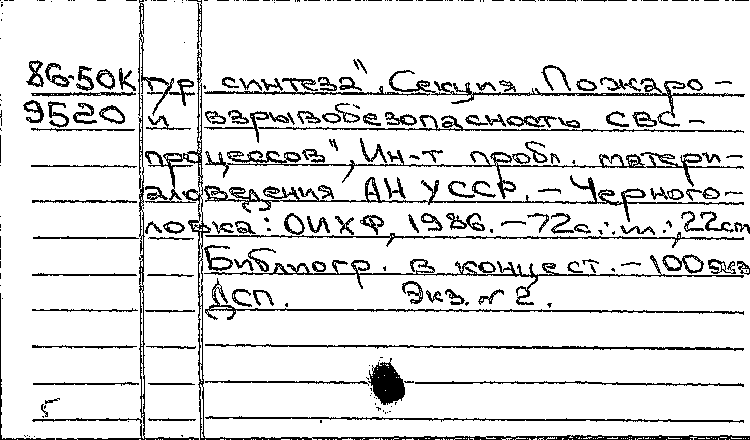 86-50К т/р. синтеза", Секция „Пожаро-
9520 и взрывобезопасность СВС-
процессов", Ин-т пробл. матери-
аловедения АН УССР. – Черного-
ловка: ОИХФ, 1986. – 72с.: ил.; 22см
Библиогр. в конце ст. – 100экз
ДСП. Экз. № 2.
5